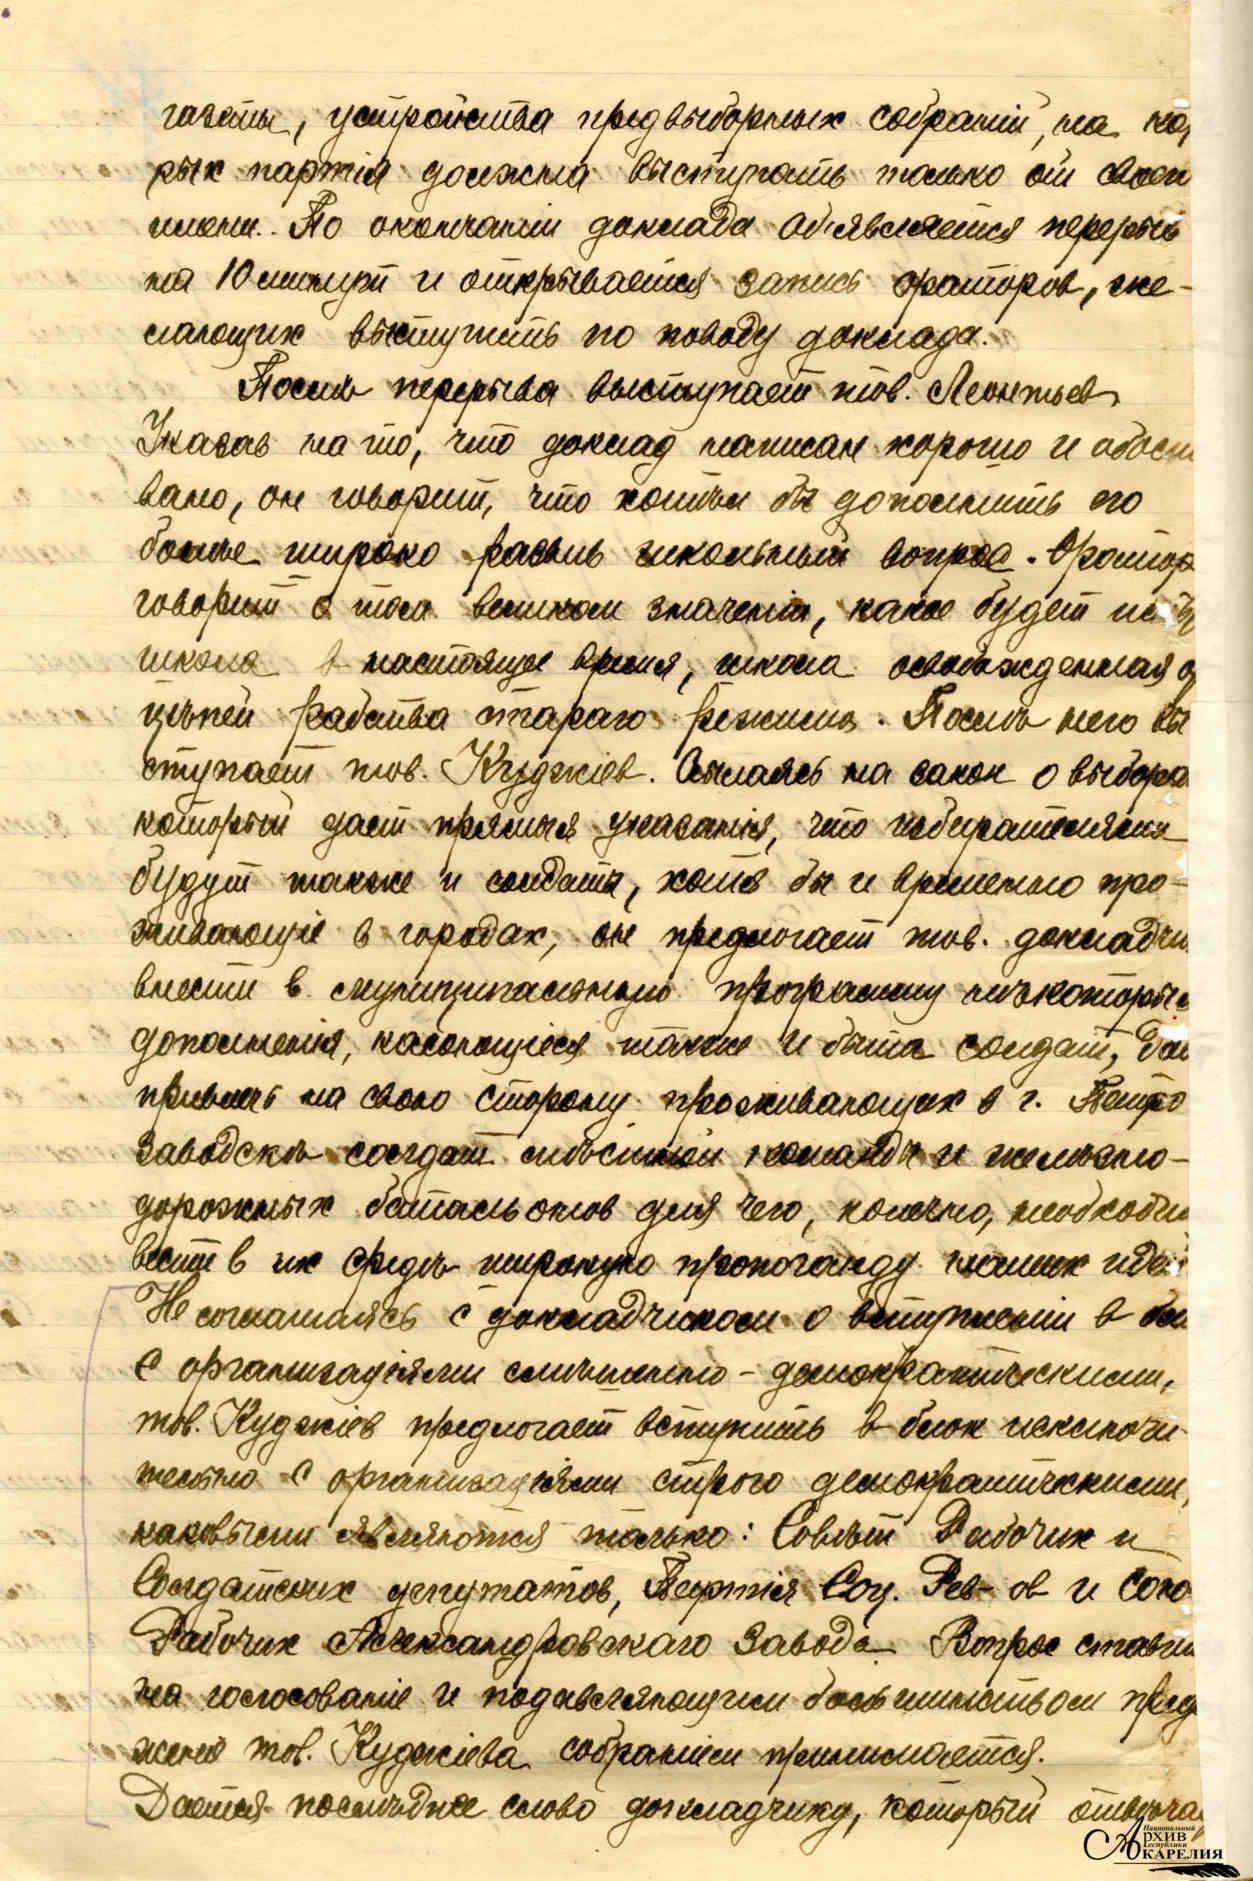 газеты, устройства предвыборных собраній, на ко
рых партія должна выступать только от своего
имени. По окончаніи доклада объявляется перерыв
на 10 минут и открывается запись ораторов, же-
лающих выступить по поводу доклада.
Послѣ перерыва выступает тов. Леонтьев.
Указав на то, что доклад написан хорошо и обосно
вано, он говорит, что хотѣл бы дополнить его
болѣе широко развив школьный вопрос. Оратор
говорит о том великом значеніи, какое будет имѣть
школа в настоящее время, школа освобожденная от
цѣпей рабства стараго режима. Послѣ него вы
ступает тов. Куджіев. Ссылаясь на закон о выборах
который дает прямыя указанія, что избирателями
будут также и солдаты, хотя бы и временно про-
живающіе в городах, он предлогает тов. докладчи
внести в муниципальную программу нѣкоторыя
дополненія, касающіеся также и быта солдат, дабы
привлечь на свою сторону проживающих в г. Петро
заводскѣ солдат мѣстной команды и желѣзно-
дорожных баталь онов для чего, конечно, необходи
вести в их средѣ широкую пропоганду наших идей
Не соглашаясь с докладчиком о вступленіи в блок
с организаціями смѣшанно-демократическими,
тов. Куджіев предлогает вступить в блок исключи-
тельно с организаціями строго демократическими,
каковыми являются только: Совѣт Рабочих и
Солдатских депутатов, Партія Соц. Рев-ов и Союз
Рабочих Александровскаго Завода. Вопрос ставит
на голосованіе и подавляющим большинством предл
женіе тов. Куджіева собраніем принимается.
Дается послѣднее слово докладчику, который отвѣча
Национальный
Архив
Республики
Карелия